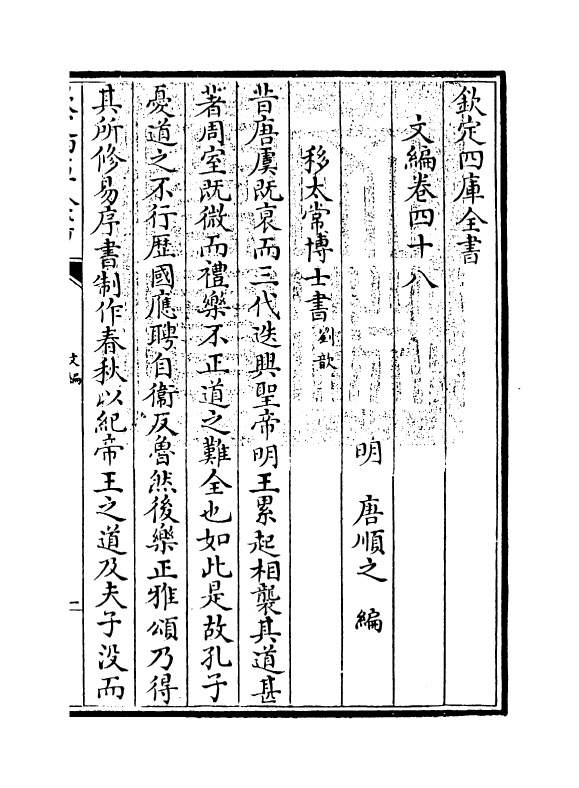 欽定四庫全書
文編卷四十八
明 唐順之 編
移太常博士書 劉歆
昔唐虞既衰而三代迭興聖帝明王累起相襲其道甚
著周室既微而禮樂不正道之難全也如此是故孔子
憂道之不行歴國應聘自衞反魯然後樂正雅頌乃得
其所修易序書制作春秋以紀帝王之道及夫子没而
文編